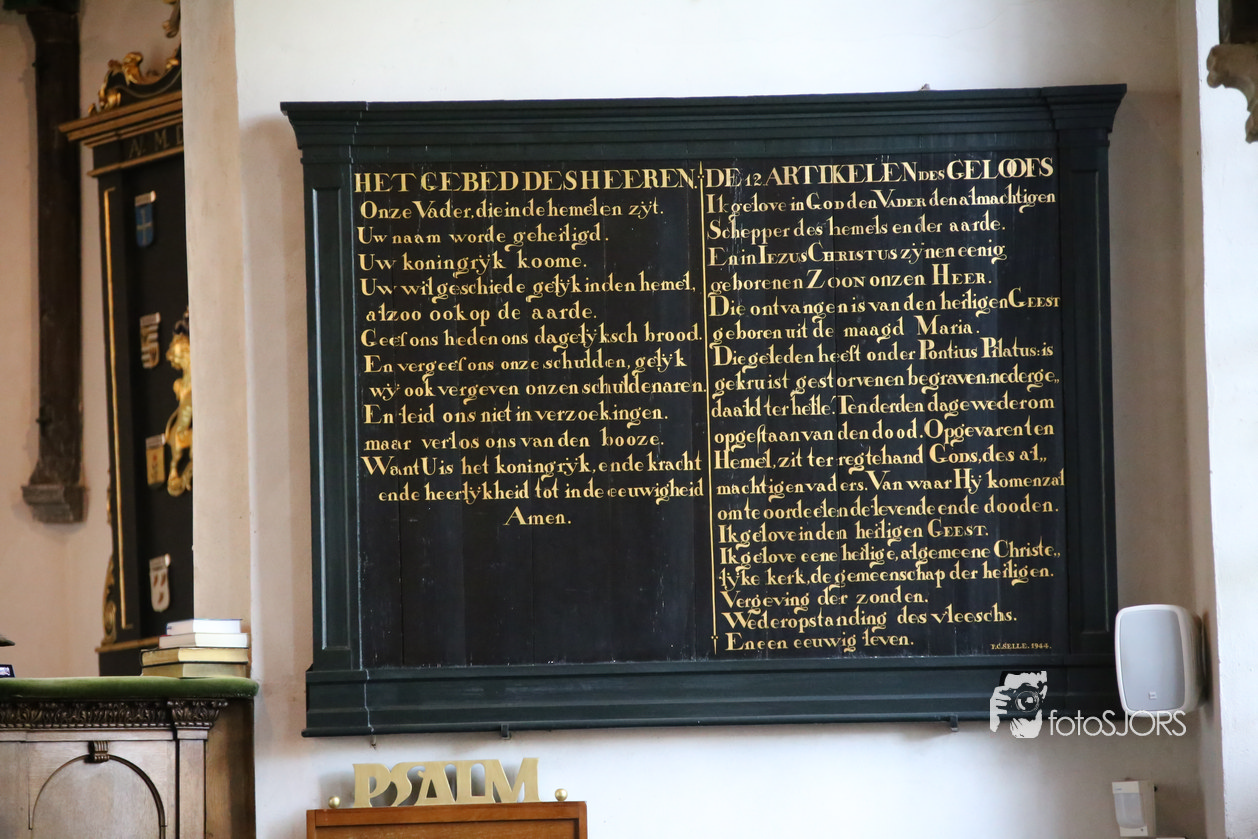 HET GEBED DES HEEREN.
Onze Vader, die in de hemelen zÿt.
Uw naam worde geheiligd.
Uw koningrÿk koome.
Uw wil geschiede gelÿk in den hemel,
alzoo ook op de aarde.
Geef ons heden ons dagelÿksch brood.
En vergeef ons onze schulden, gelÿk
wÿ ook vergeven onzen schuldenaren.
En leid ons niet in verzoekingen.
maar verlos ons van den booze.
Want U is het koningrÿk, ende kracht
ende heerlÿkheid tot in de eeuwigheid
Amen.
DE 12 ARTIKELEN DES GELOOFS
Ik gelove in GOD den VADER den almachtigen
Schepper des hemels en der aarde.
En in IEZUS CHRISTUS zÿnen eenig
geborenen ZOON onzen HEER.
Die ontvangen is van den heiligen GEEST
geboren uit de maagd Maria.
Die geleden heeft onder Pontius Pilatus: is
gekruist gestorven en begraven: nederge„
daald ter helle. Ten derden dage wederom
opgestaan van den dood. Opgevaren ten
Hemel, zit ter regtehand GODS, des al„
machtigen vaders. Van waar Hÿ komen zal
om te oordeelen de levende ende dooden.
Ik gelove in den heiligen GEEST.
Ik gelove eene heilige, algemeene Christe„
lÿke kerk, de gemeenschap der heiligen.
Vergeving der zonden.
Wederopstanding des vleeschs.
En een eeuwig leven.
I.C.SELLE. 1944.
PSALM
fotoSJORS